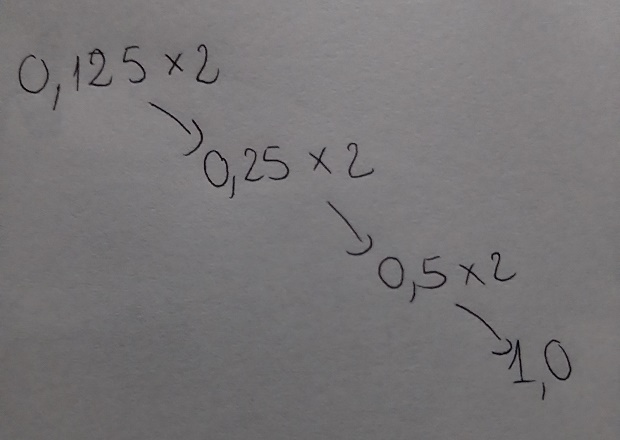 0,125 × 2
0,25 × 2
0,5 × 2
1,0